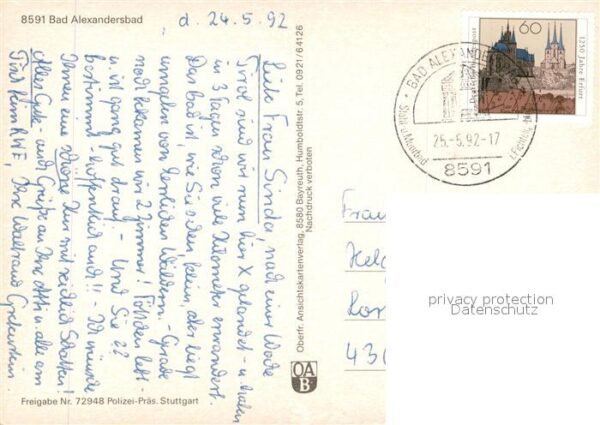 8591 Bad Alexandersbad
d. 24.5.92
Liebe Frau Sinda, nach einer Woche
Tirol sind wir nun hier gelandet - u. haben
in 3 Tagen schon viele Kilometer erwandert.
Das Bad ist, wie Sie sehen, klein, aber liegt
inmitten von herrlichen Wäldern. - Gerade
noch bekamen wir 2 Zimmer!
u. ist ganz gut drauf. - Und Sie ??
bestimmt - hoffentlich auch!! - Ich wünsche
Ihnen eine schöne Kur mit reichlich Schatten!
Alles Gute - und Grüße an
Ihre Waltraud
Oberfr. Ansichtskartenverlag, 8580 Bayreuth, Humboldtstr. 5, Tel. 0921/64126
Nachdruck verboten
OA
B
Freigabe Nr. 72948 Polizei-Präs. Stuttgart
60
1250 Jahre Erfurt
Deutsche Bundespost
BAD ALEXANDERS
25.-5.92-17
8591
Frau
Held
43
privacy protection
Datenschutz